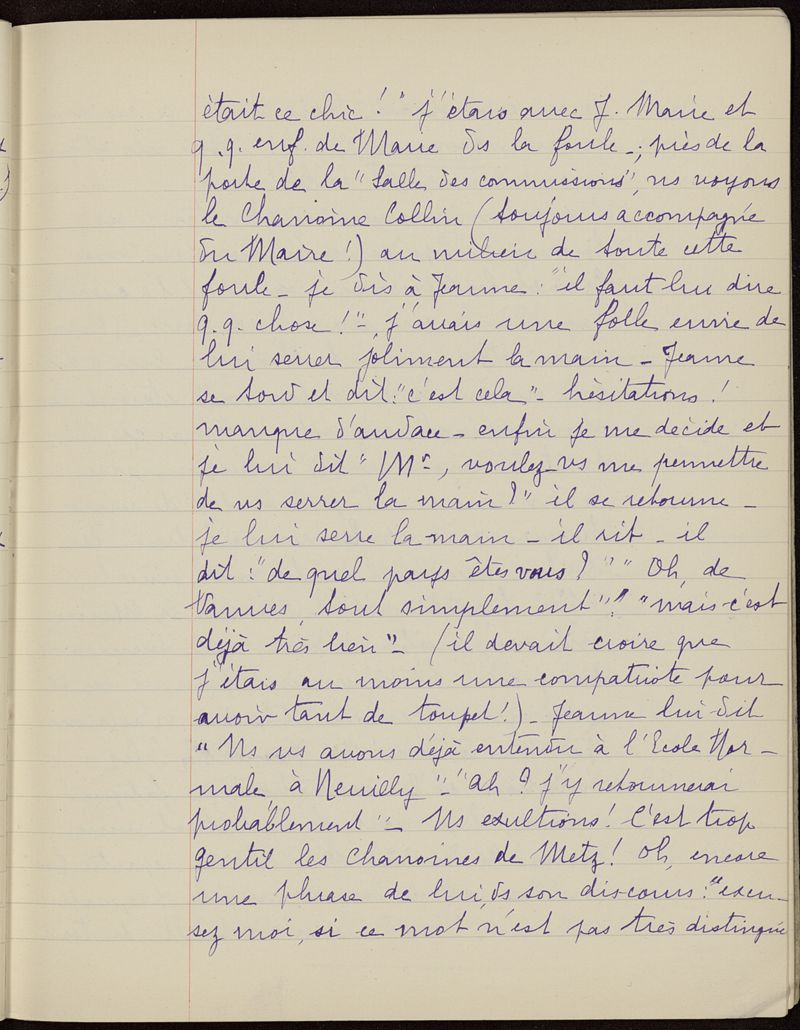 était ce chic !" j'étais avec J. Marie et
q.q. enf. de Marie ds la foule -; près de la
porte de la "Salle des commissions", ns voyons
le Chanoine Collin (toujours accompagné
du Maire !) au milieu de toute cette
foule - je dis à Jeanne : "il faut lui dire
q.q. chose !" - j'avais une folle envie de
lui serrer joliment la main - Jeanne
se tord et dit : "c'est cela" - hésitations !
manque d'audace - enfin je me décide et
je lui dit "Mr, voulez-vs me permettre
de vs serrer la main ?" il se retourne -
je lui serre la main - il rit - il
dit : "de quel pays êtes vous ?" "Oh, de
Vanves, tout simplement" ! "mais c'est
déjà très bien" - (il devait croire que
j'étais au moins une compatriote pour
avoir tant de toupet !) - Jeanne lui dit
"Ns vs avons déjà entendu à l'Ecole Nor-
male, à Neuilly" - "Ah ? j'y retournerai
probablement" - Ns exultions ! C'est trop
gentil les chanoines de Metz ! Oh, encore
une phrase de lui, ds son discours : "excu-
sez moi, si ce mot n'est pas très distingué